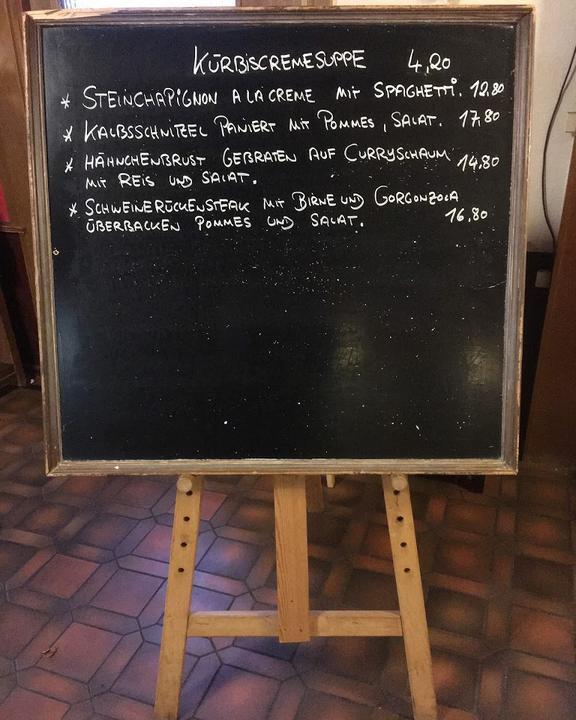 KÜRBISCREMESUPPE 4,20
* STEINCHAPIGNON A LA CREME MIT SPAGHETTI. 12,80
* KALBSSCHNITZEL PANIERT MIT POMMES, SALAT. 17,80
* HÄHNCHENBRUST GEBRATEN AUF CURRYSCHAUM 14,80
MIT REIS UND SALAT.
* SCHWEINERÜCKENSTEAK MIT BIRNE UND GORGONZOLA
ÜBERBACKEN POMMES UND SALAT. 16,80